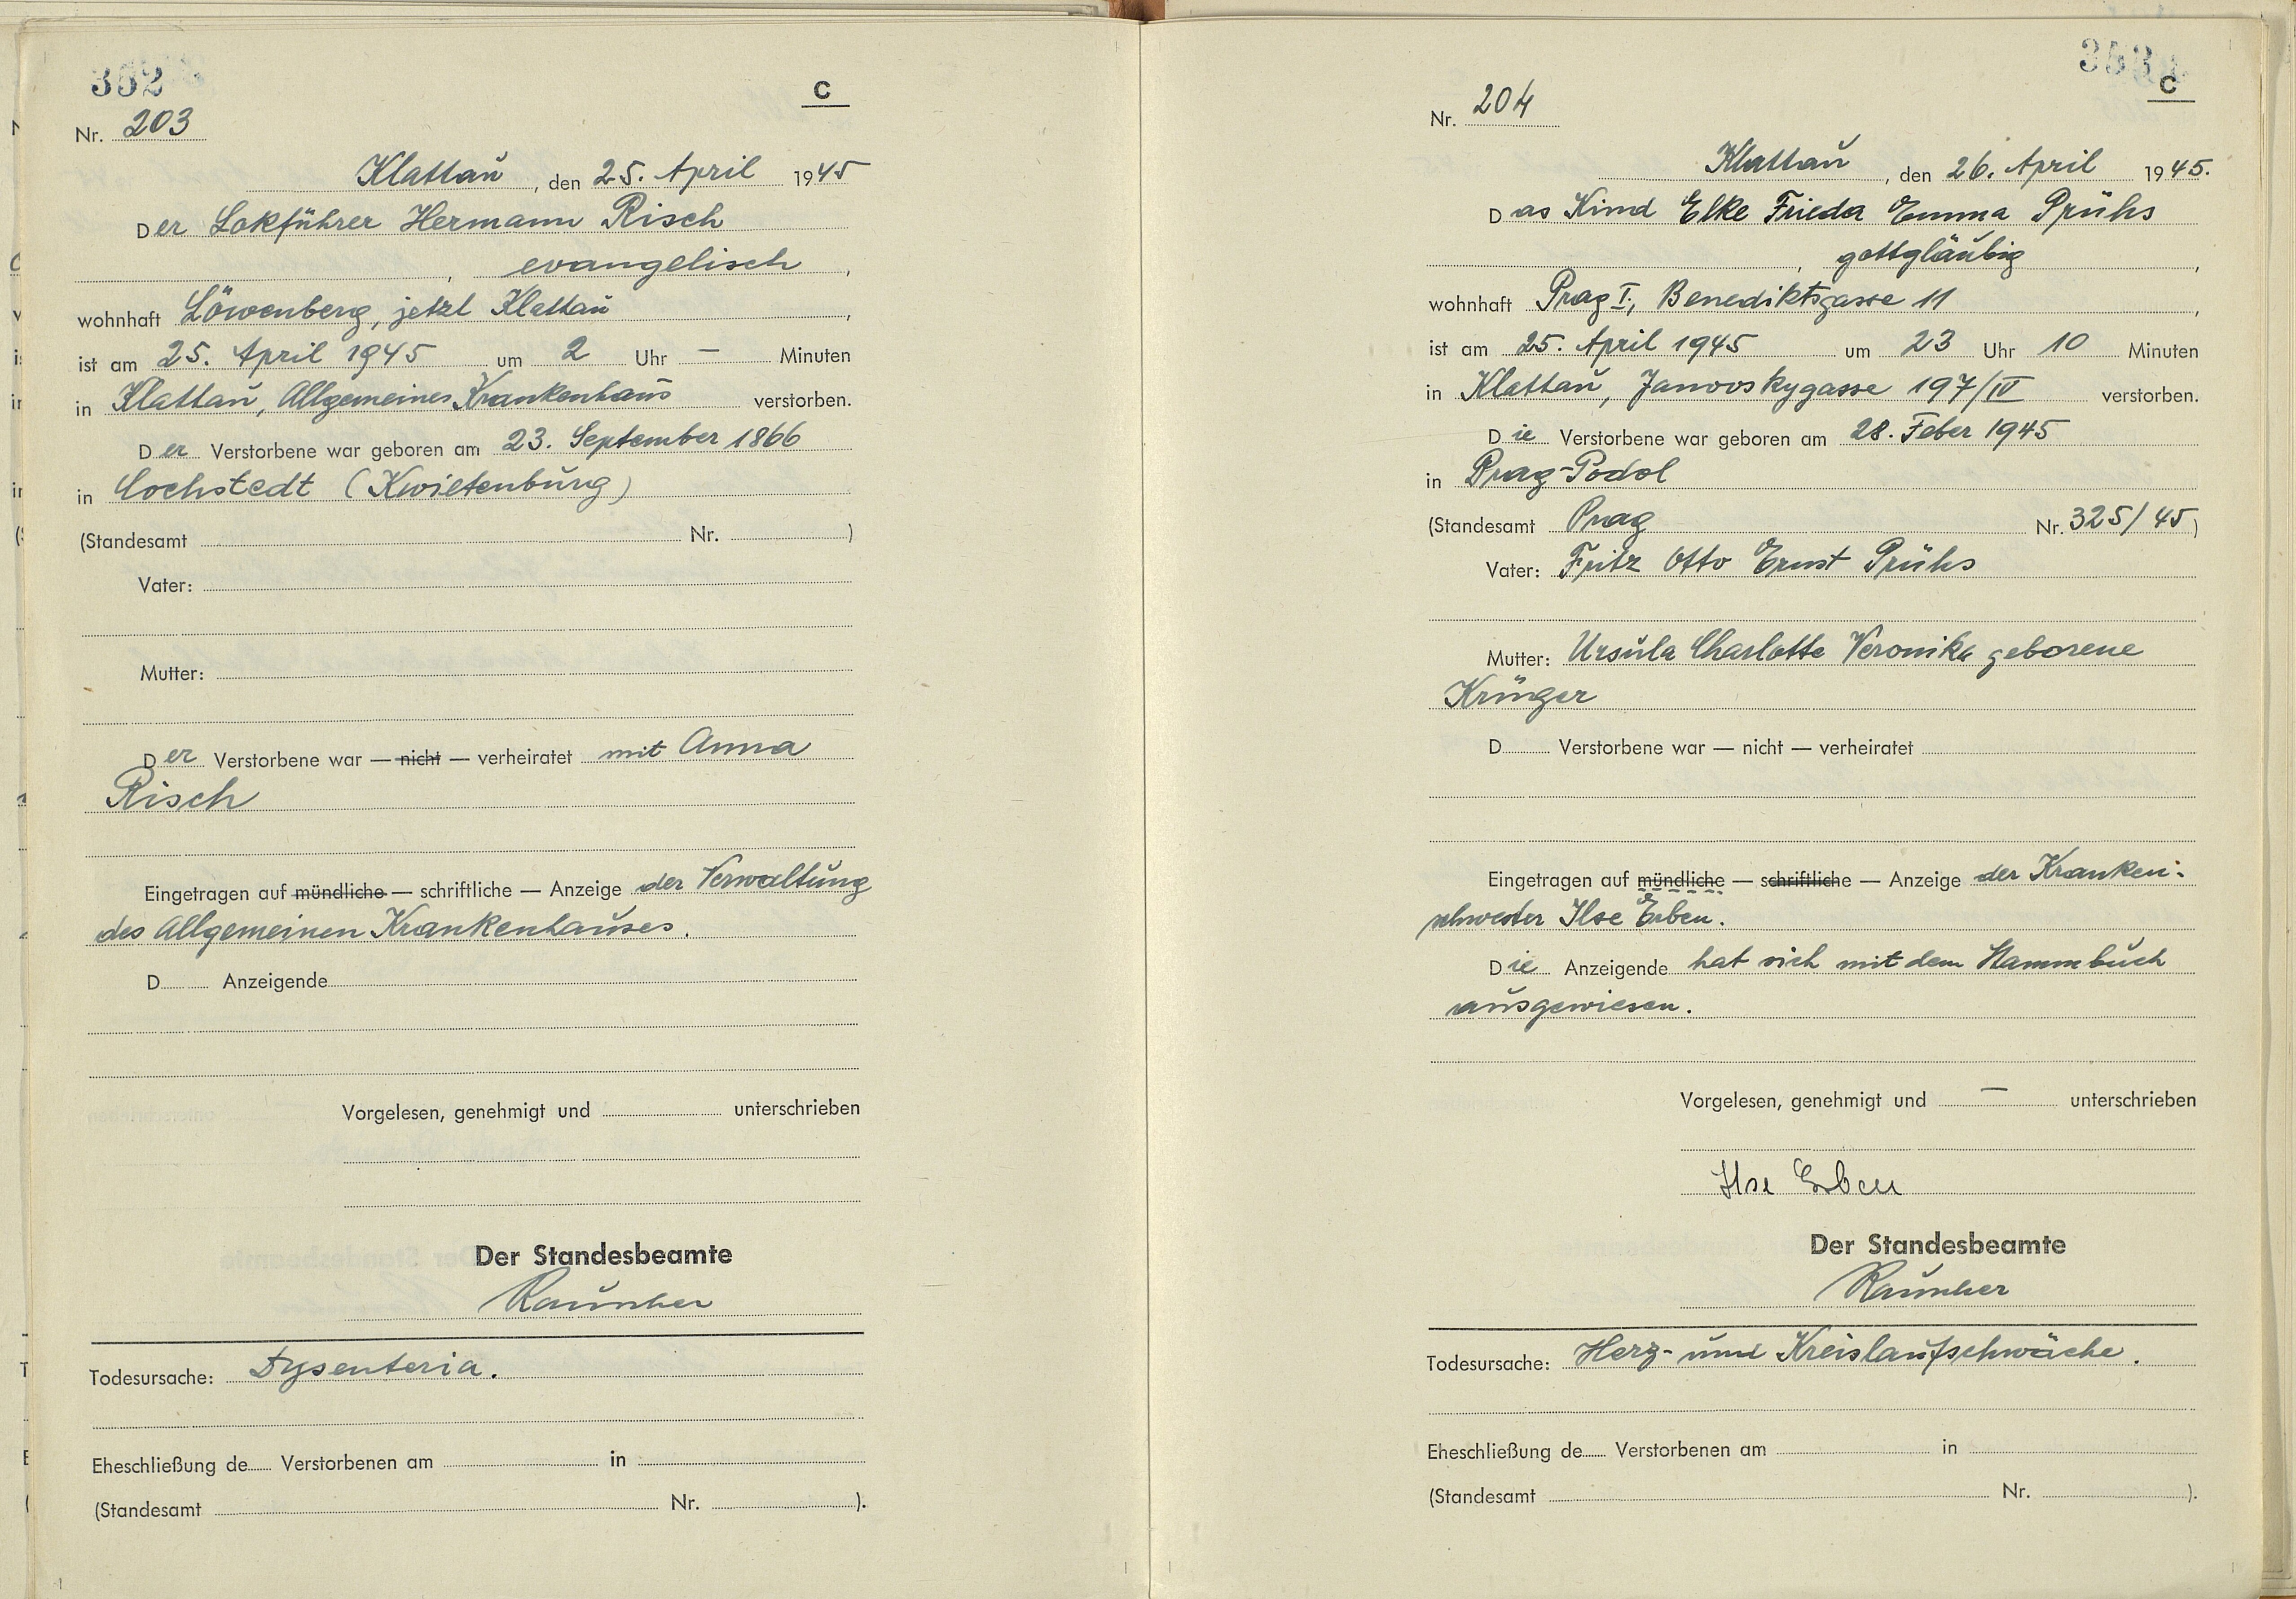 352
C
Nr. 203
Klattau, den 25. April 1945
Der Lokführer Hermann Risch
, evangelisch,
wohnhaft Löwenberg, jetzt Klattau,
ist am 25. April 1945 um 2 Uhr — Minuten
in Klattau, Allgemeines Krankenhaus verstorben.
Der Verstorbene war geboren am 23. September 1866
in Cochstedt (Kwietenburg)
(Standesamt Nr. )
Vater:
Mutter:
Der Verstorbene war — nicht — verheiratet mit Anna
Risch
Eingetragen auf mündliche — schriftliche — Anzeige der Verwaltung
des Allgemeinen Krankenhauses.
D Anzeigende
Vorgelesen, genehmigt und unterschrieben
Der Standesbeamte
Todesursache: Dysenteria.
Eheschließung de Verstorbenen am in
(Standesamt Nr. ).
353
C
Nr. 204
Klattau, den 26. April 1945.
Das Kind Elke Frieda Emma Prühs
, gottgläubig,
wohnhaft Prag I., Benediktsgasse 11,
ist am 25. April 1945 um 23 Uhr 10 Minuten
in Klattau, Janovskygasse 197/IV verstorben.
Die Verstorbene war geboren am 28. Feber 1945
in Prag-Podol
(Standesamt Prag Nr. 325/45)
Vater: Fritz Otto Ernst Prühs
Mutter: Ursula Charlotte Veronika geborene
Krüger
D Verstorbene war — nicht — verheiratet
Eingetragen auf mündliche — schriftliche — Anzeige der Kranken-
schwester Ilse Erben.
Die Anzeigende hat sich mit dem Stammbuch
ausgewiesen.
Vorgelesen, genehmigt und — unterschrieben
Ilse Erben
Der Standesbeamte
Todesursache: Herz- und Kreislaufschwäche.
Eheschließung de Verstorbenen am in
(Standesamt Nr. ).